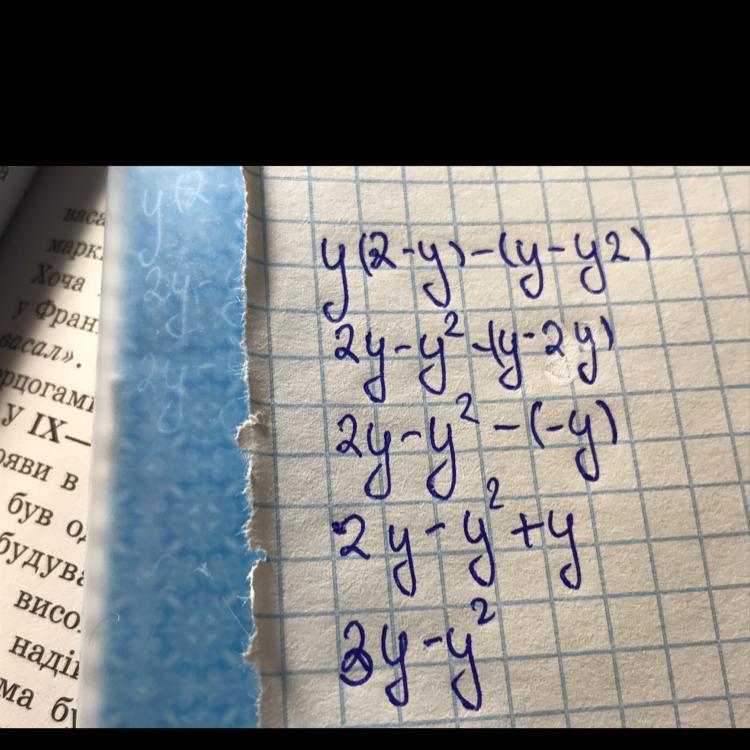 васа
марк
Хоча
у Фран
васал».
рцогамі
у IX—
ояви в
був од
будува
висо
надій
ма бу
y(2
2y-
2y-
y(2-y)-(y-y2)
2y-y²-(y-2y)
2y-y²-(-y)
2y-y²+y
3y-y²